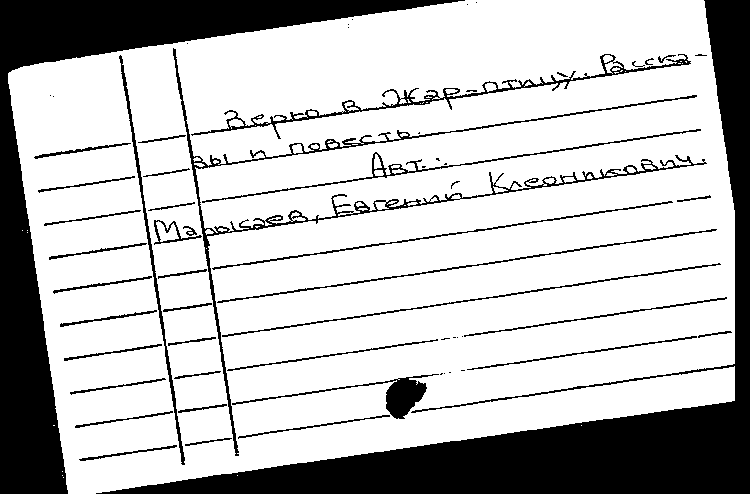 Верю в Жар-птицу. Расска-
зы и повесть.
Авт.:
Марысаев, Евгений Клеоникович.